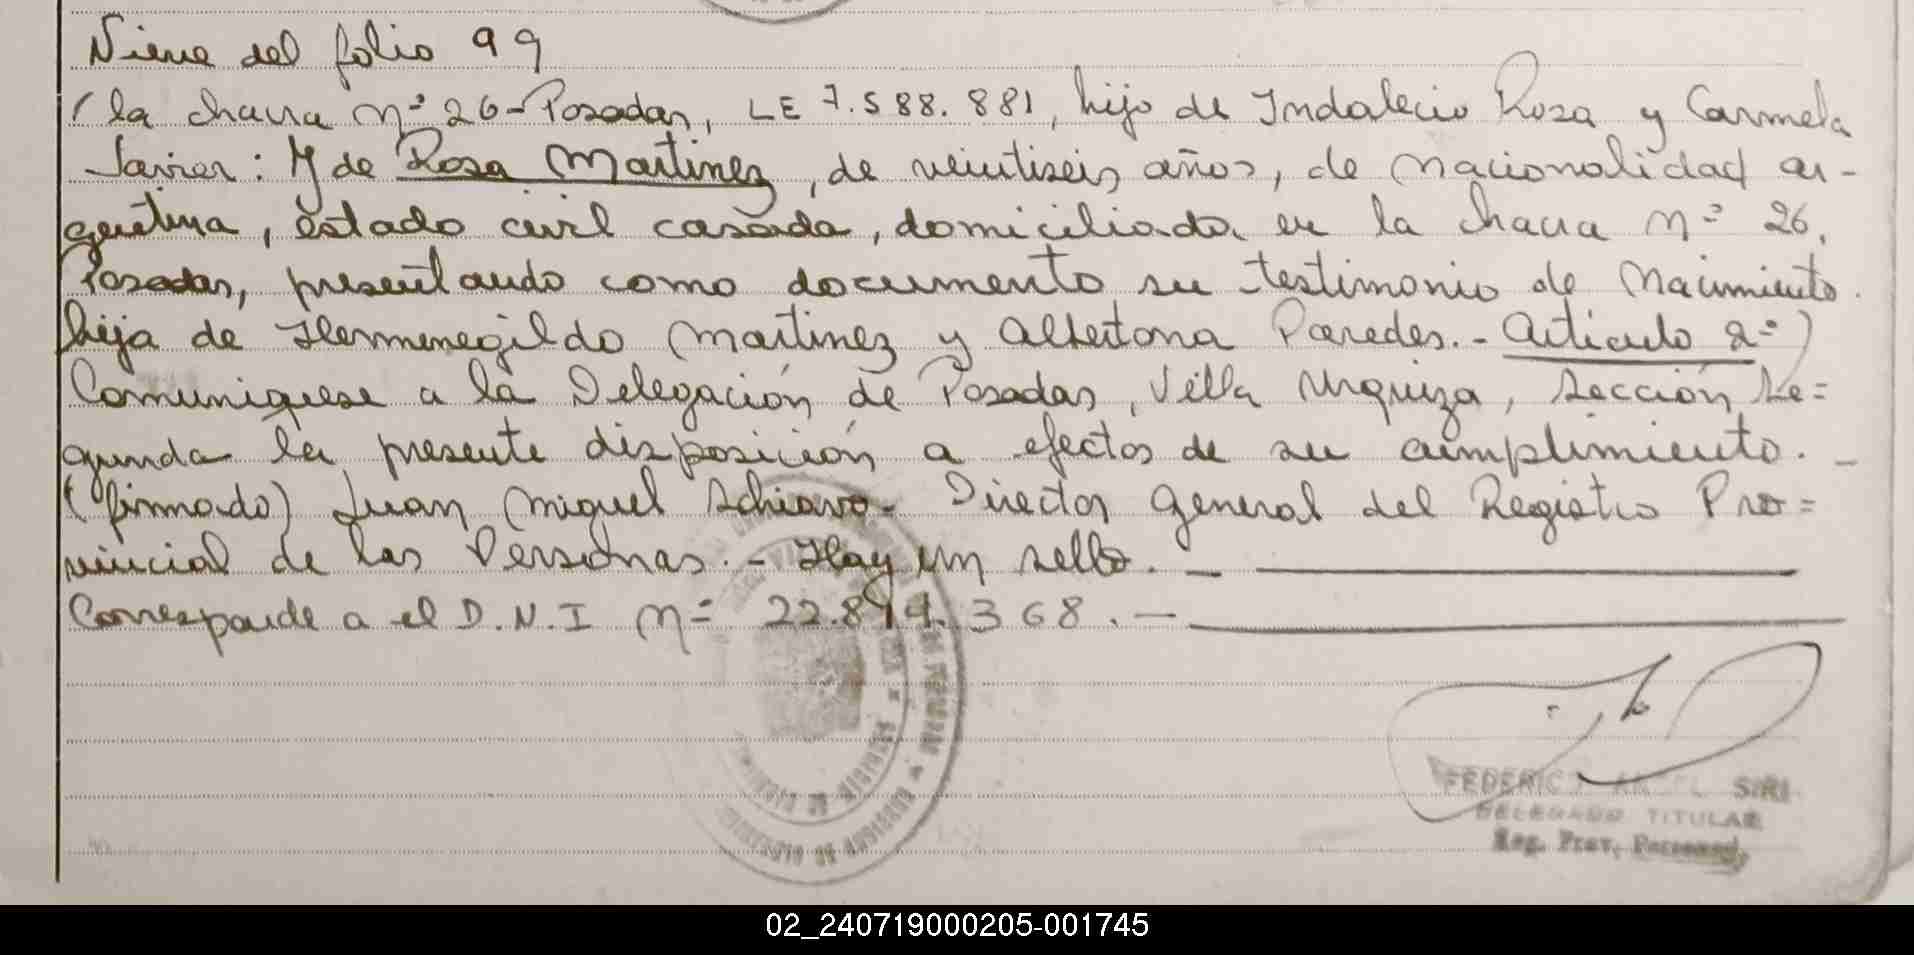 Viene del folio 99
(la chacra nº 26 - Posadas, LE 7.588.881, hijo de Indalecio Roza y Carmela
Javier: Y de Rosa Martinez, de veintiseis años, de nacionalidad ar-
gentina, estado civil casada, domiciliada en la chacra nº 26,
Posadas, presentando como documento su testimonio de nacimiento.
hija de Hermenegildo Martinez y Paredes. - Articulo 2º)
Comuniquese a la Delegación de Posadas, Villa Urquiza, Sección Se=
gunda la presente disposición a efectos de su cumplimiento. -
(firmado) Juan Miguel Schiavo - Director General del Registro Pro=
vincial de las Personas. - Hay un sello. -
Corresponde a el D.N.I nº 22.894.368. -
FEDERICO SIRI
DELEGADO TITULAR
Reg. Prov. Personas
02_240719000205-001745